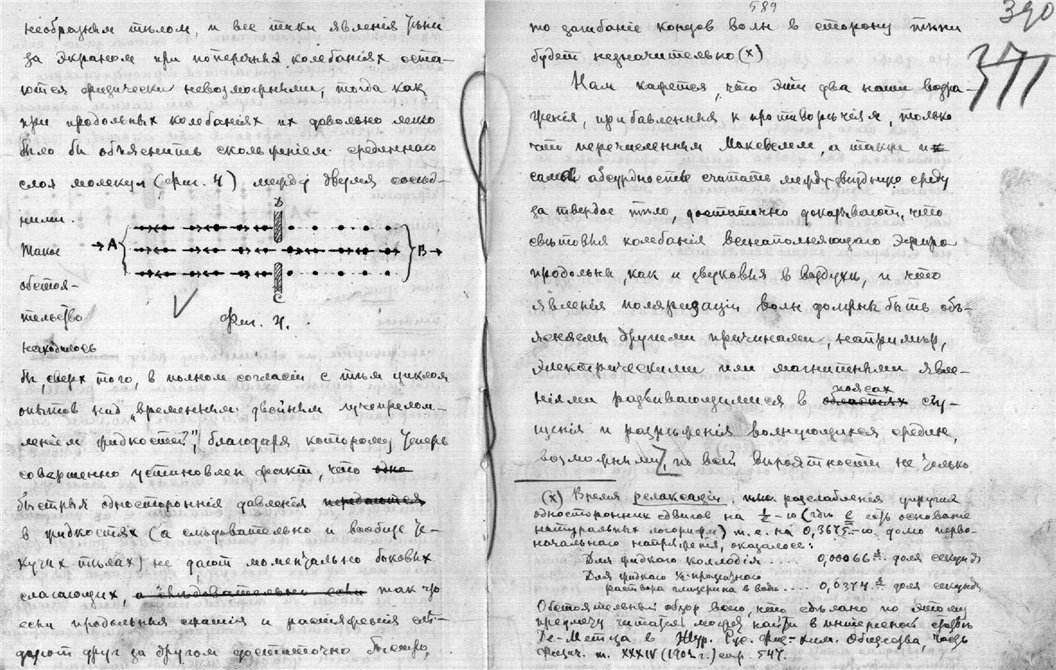 необразным тѣлом, и все такія явленія тѣни
за экраном при поперечныя колебаніях оста-
ются физически невозможными, тогда как
при продольных колебаніях их довольно легко
было бы объяснить скольженіем срединнаго
слоя молекул (фиг. 4) между двумя сосѣд-
ними.
Такое
обстоя-
тельство
находилось
D
→ А
В →
С
Фиг. 4.
бы, сверх того, в полном согласіи с тѣм циклом
опытов над „временным двойным лучепрелом-
леніем жидкостей", благодаря которому теперь
совершенно установлен факт, что одно
быстрыя одностороннія давленія передаются
в жидкостях (а слѣдовательно и вообще те-
кучих тѣлах) не дают моментально боковых
слагающих, а слѣдовательно если так что
если продольныя сжатія и разряженія слѣ-
дуют друг за другом достаточно быстро,
589
390
377
то загибаніе концов волн в сторону тѣни
будет незначительно (х)
Нам кажется, что эти два наши возра-
женія, прибавленныя к противорѣчіям, только
что перечисленным Максвелем, а также и
самой абсурдности считать междузвѣздную среду
за твердое тѣло, достаточно доказывают, что
свѣтовыя колебанія всенаполняющаго эфира
продольны, как и звуковыя в воздухѣ, и что
явленія поляризаціи волн должны быть объ-
яснены другими причинами, например,
электрическими или магнитными явле-
ніями развивающимися в областях поясах сгу-
щенія и разряженія волнующейся средины,
возможными, по всей вѣроятности не только
(х) Время релаксаціи, т.е. разслабленія упругих
односторонних сдвигов на 1/e-ю (гдѣ e есть основаніе
натуральных логорифм) т. е. на 0,3675-ю долю перво-
начальнаго напряженія, оказалось:
Для жидкаго коллодія .... 0,00066-я доля секунды
Для жидкаго ½-процентнаго
раствора глицерина в водѣ .... 0,0374-я доля секунды
Обстоятельный обзор всего, что сдѣлано по этому
предмету читатель может найти в интересной статьѣ
Де-Метца в Жур. Рус. Физ-хим. Общества, часть
физич. т. XXXIV (1902 г.) стр. 547.